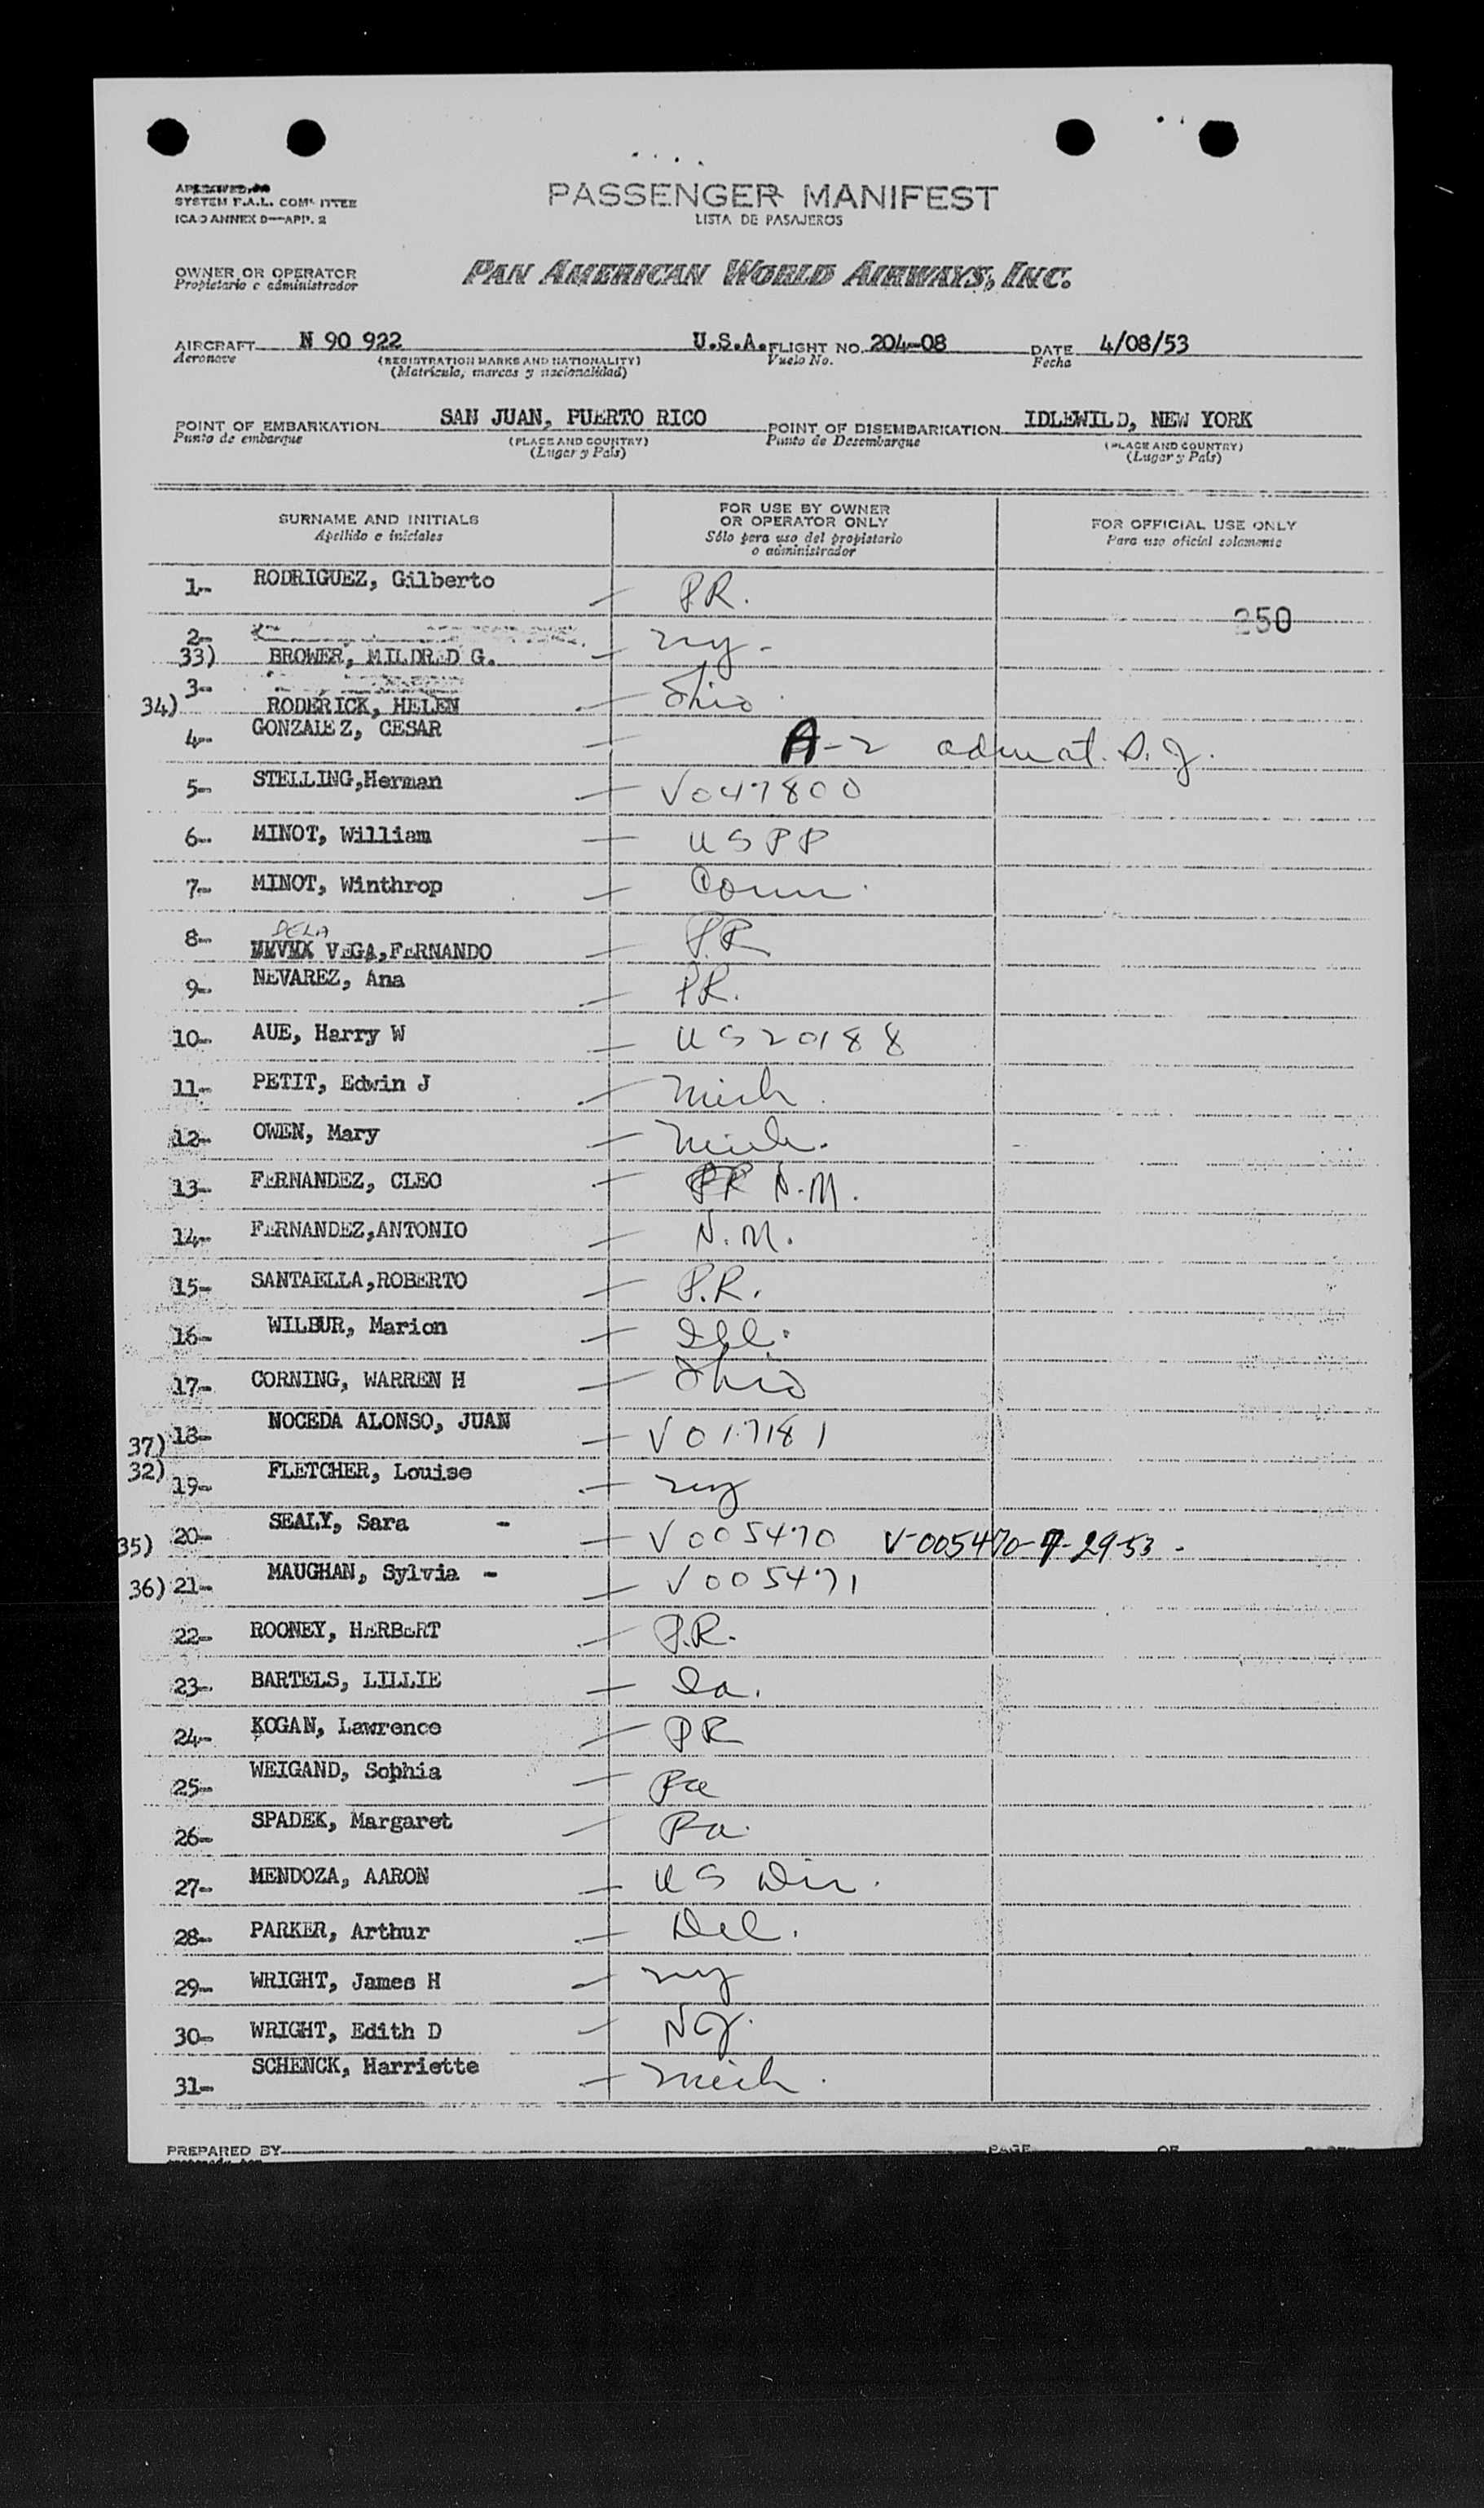 SYSTEM F.A.L. COMMITTEE
ICAO ANNEX 9—APP. 2
PASSENGER MANIFEST
LISTA DE PASAJEROS
OWNER OR OPERATOR
Propietario o administrador
PAN AMERICAN WORLD AIRWAYS, INC.
AIRCRAFT N 90 922 U.S.A. FLIGHT NO. 204-08 DATE 4/08/53
Aeronave (REGISTRATION MARKS AND NATIONALITY) Vuelo No. Fecha
(Matrícula, marcas y nacionalidad)
POINT OF EMBARKATION SAN JUAN, PUERTO RICO POINT OF DISEMBARKATION IDLEWILD, NEW YORK
Punto de embarque (PLACE AND COUNTRY) Punto de Desembarque (PLACE AND COUNTRY)
(Lugar y País) (Lugar y País)
SURNAME AND INITIALS FOR USE BY OWNER OR OPERATOR ONLY FOR OFFICIAL USE ONLY
Apellido e iniciales Sólo para uso del propietario o administrador Para uso oficial solamente
1- RODRIGUEZ, Gilberto — P.R.
250
2-
33) BROWER, MILDRED G. — ny -
3-
34) RODERICK, HELEN — Ohio
4- GONZALEZ, CESAR — A-2 admat. S.J.
5- STELLING,Herman — V047800
6- MINOT, William — USPP
7- MINOT, Winthrop — Conn.
8- DELA VEGA,FERNANDO — P.R
9- NEVAREZ, Ana — P.R.
10- AUE, Harry W — US20188
11- PETIT, Edwin J — Mich.
12- OWEN, Mary — Mich.
13- FERNANDEZ, CLEO — PR N.M.
14- FERNANDEZ,ANTONIO — N.M.
15- SANTAELLA,ROBERTO — P.R.
16- WILBUR, Marion — Ill.
17- CORNING, WARREN H — Ohio
37) 18- NOCEDA ALONSO, JUAN — V017181
32) 19- FLETCHER, Louise — ny
35) 20- SEALY, Sara - — V005470 V-005470-7-29-53 -
36) 21- MAUGHAN, Sylvia - — V005471
22- ROONEY, HERBERT — P.R.
23- BARTELS, LILLIE — Ia.
24- KOGAN, Lawrence — PR
25- WEIGAND, Sophia — Pa
26- SPADEK, Margaret — Pa.
27- MENDOZA, AARON — US Dir.
28- PARKER, Arthur — Del.
29- WRIGHT, James H — ny
30- WRIGHT, Edith D — NJ.
31- SCHENCK, Harriette — Mich.
PREPARED BY PAGE OF